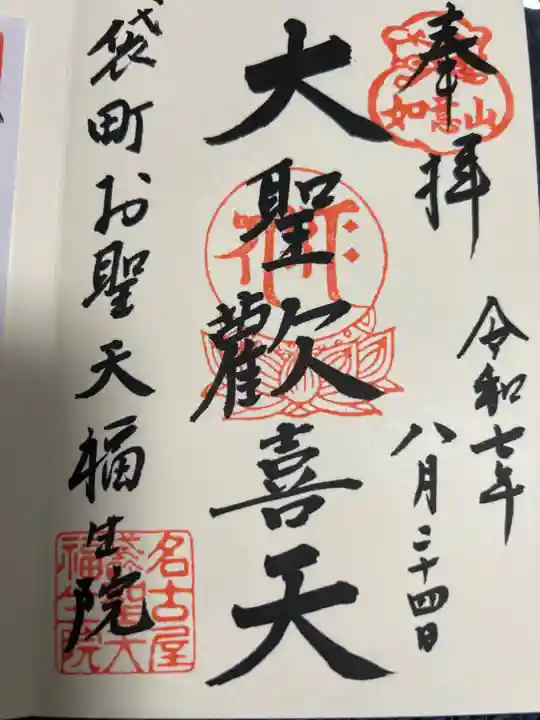 奉拝
如意山
令和七年
八月二十四日
大聖歓喜天
袋町お聖天福生院
名古屋
袋聖天
福生院